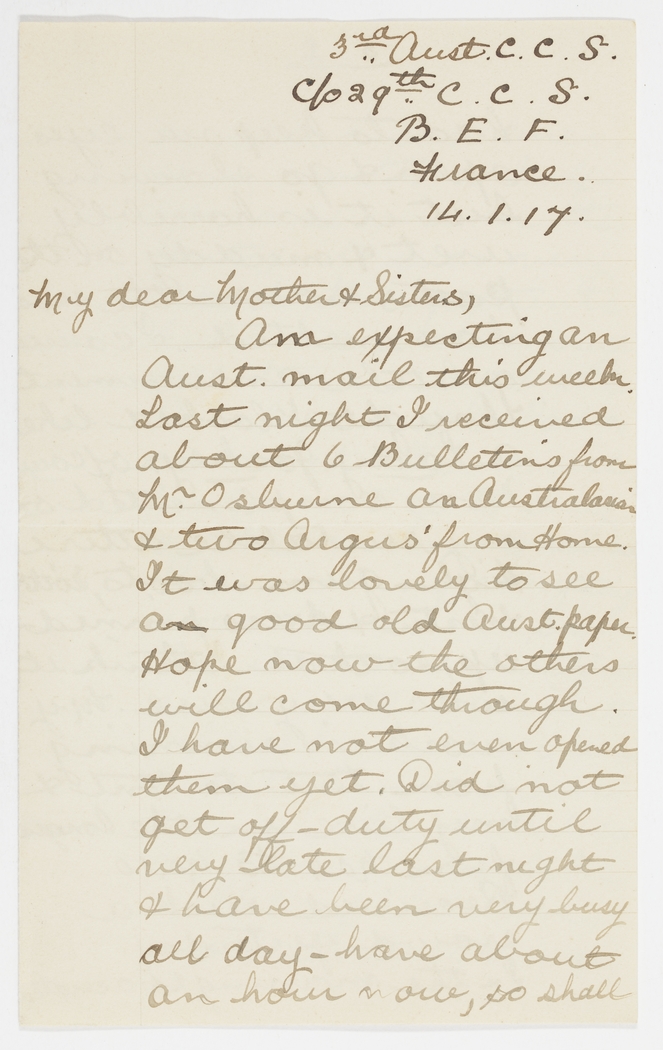 3rd Aust. C. C. S.
C/o 29th C. C. S.
B. E. F.
France.
14. 1. 17.
My dear Mother & Sisters,
Am expecting an
Aust. mail this week.
Last night I received
about 6 Bulletins from
Mr Osburne an Australasian
& two Argus' from Home.
It was lovely to see
a good old Aust. paper.
Hope now the others
will come through.
I have not even opened
them yet. Did not
get off-duty until
very late last night
& have been very busy
all day - have about
an hour now, so shall